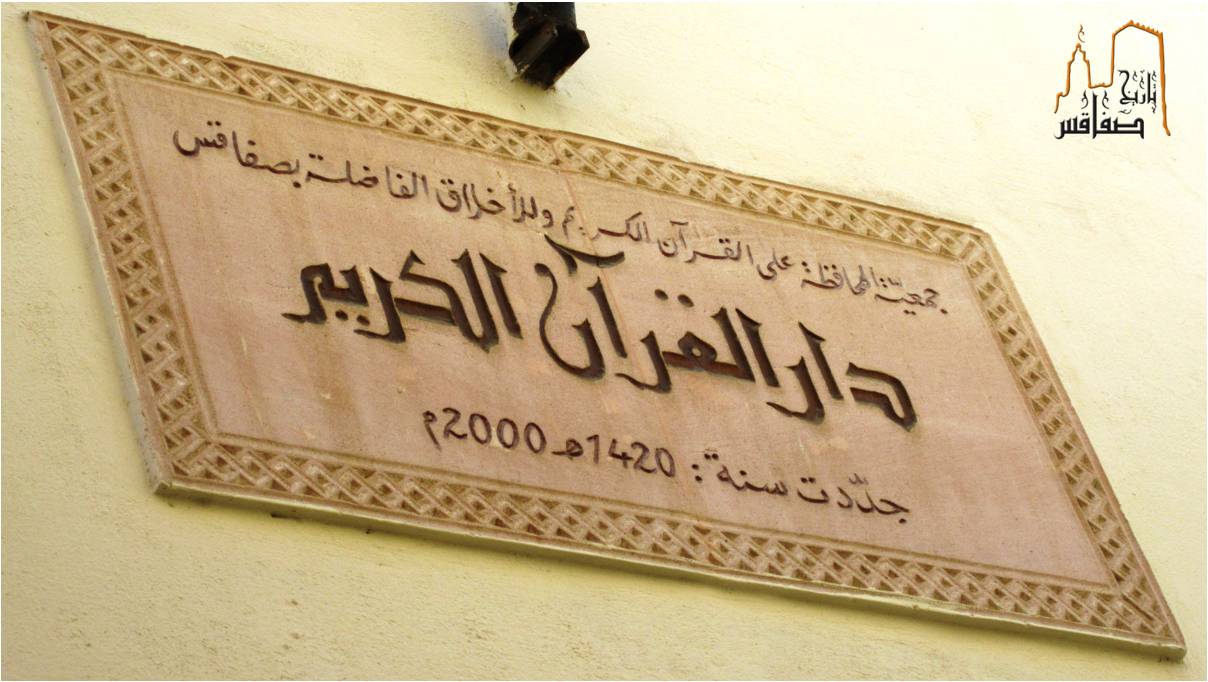 جمعيّة المحافظة على القرآن الكريم وللأخلاق الفاضلة بصفاقس
دار القرآن الكريم
جدّدت سنة : 1420هـ 2000م
تاريخ
صفاقس